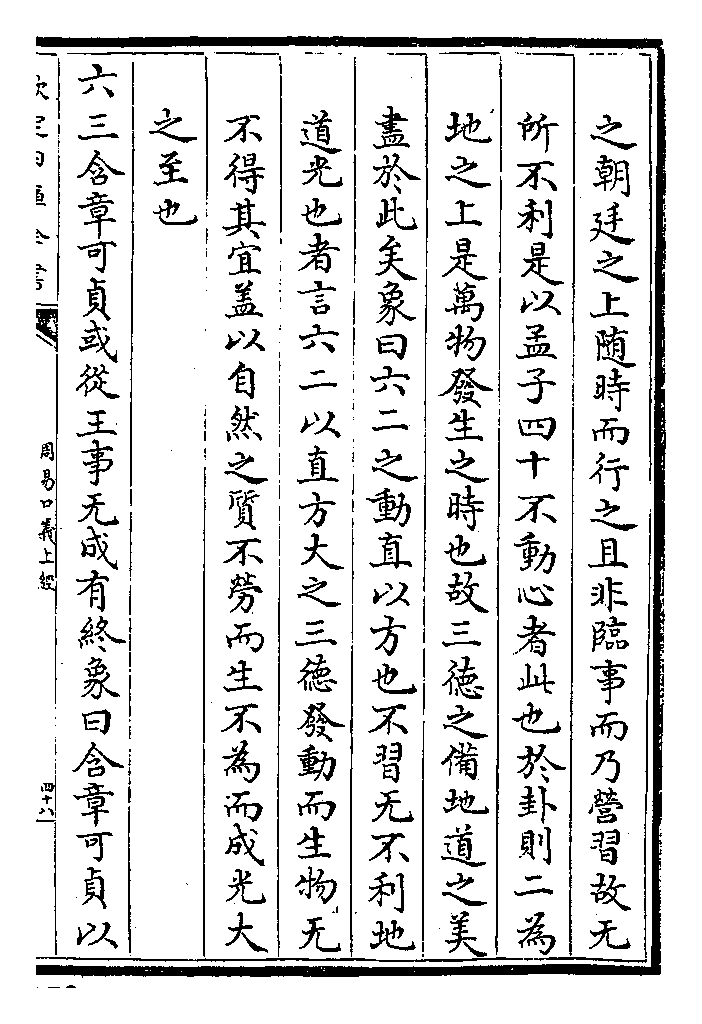 之朝廷之上随時而行之且非臨事而乃營習故无
所不利是以孟子四十不動心者此也於卦則二為
地之上是萬物發生之時也故三徳之備地道之美
盡於此矣象曰六二之動直以方也不習无不利地
道光也者言六二以直方大之三徳發動而生物无
不得其宜盖以自然之質不勞而生不為而成光大
之至也
六三含章可貞或從王事无成有終象曰含章可貞以
周易口義上經
四十八